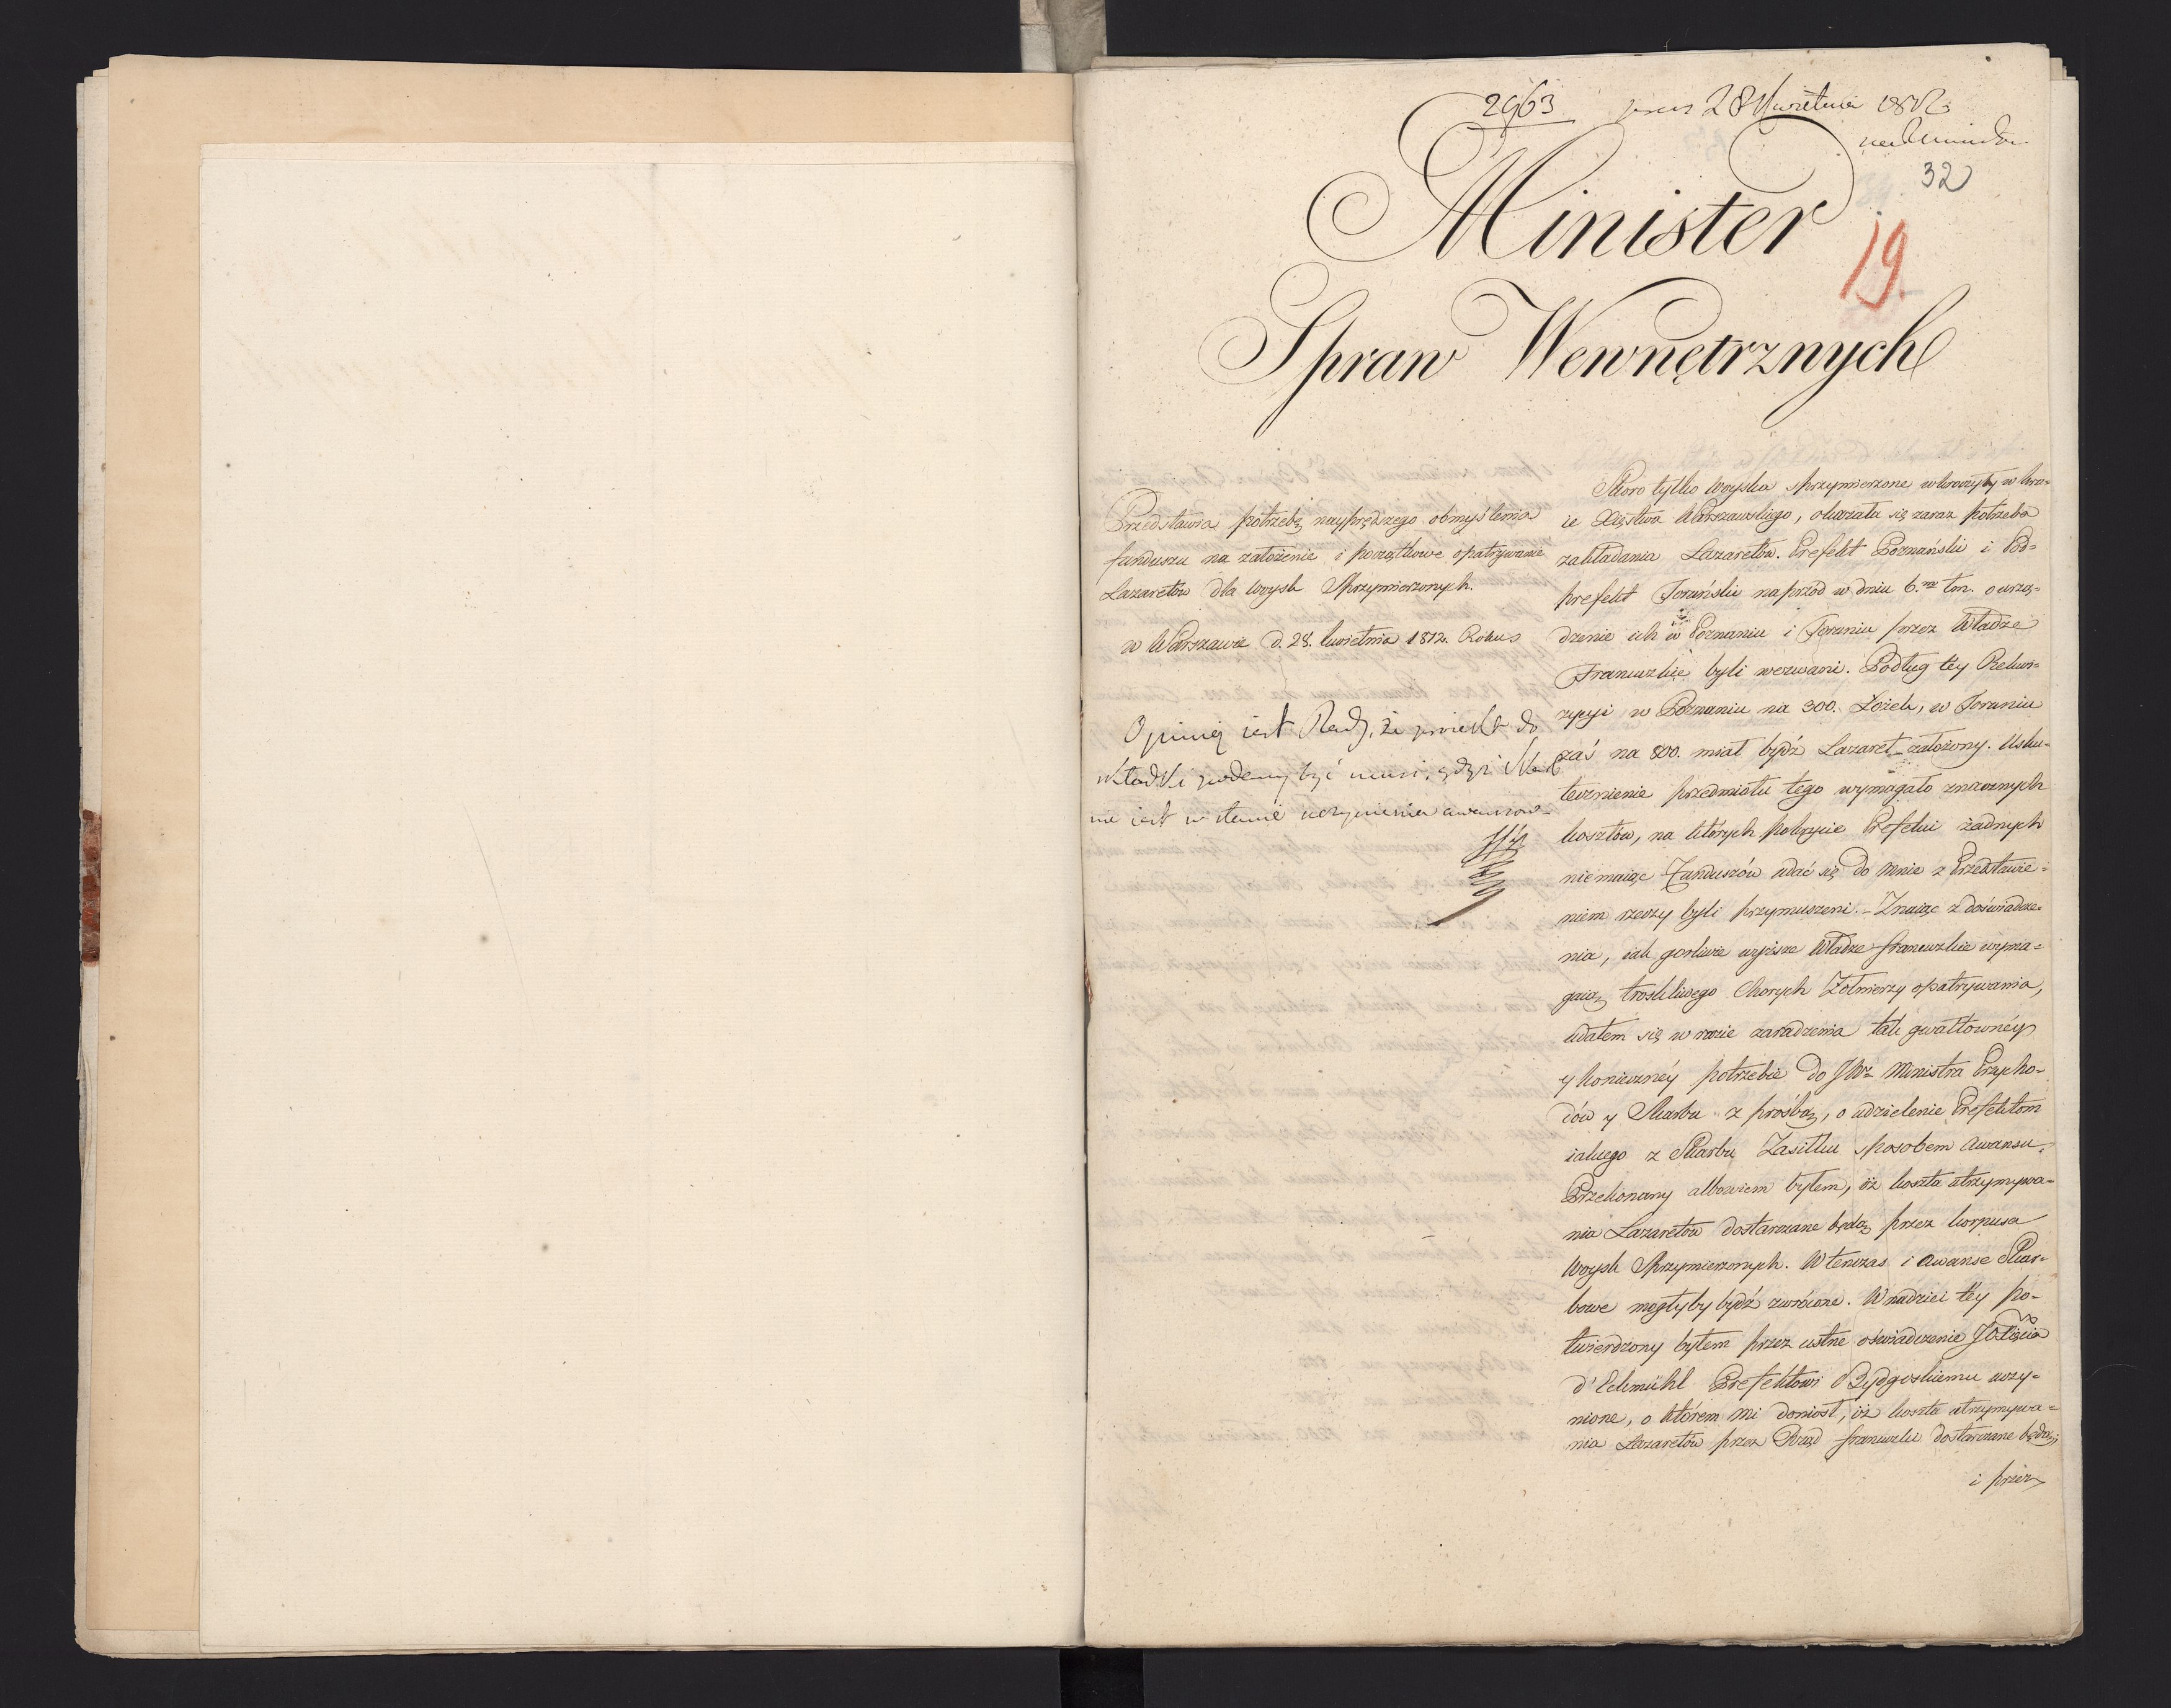 2963 28 Kwietnia 1812
32
Minister
19.
Spraw Wewnętrznych
Przedstawia potrzebę nayprędszego obmyślenia
funduszu na założenie i początkowe opatrywanie
Lazaretów dla Woysk Sprzymierzonych.
w Warszawie d. 28. kwietnia 1812. Roku
Opinią iest Rady, że proiekt do
składki podany być musi, gdyż Skarb
nie iest w stanie uczynienia awansow
Skoro tylko Woyska sprzymierzone wkroczyły w kra-
ie Xięstwa Warszawskiego, okazała się zaraz potrzeba
zakładania Lazaretów. Prefekt Poznański i Pod-
prefekt Toruński naprzód w dniu 6.go tm. o urzą-
dzenie ich w Poznaniu i Toruniu przez Władze
Francuzkie byli wezwani. Podług tey Rekwi-
zycyi w Poznaniu na 300. Łóżek, w Toruniu
zaś na 800. miał bydź Lazaret założony. Usku-
tecznienie przedmiotu tego wymagało znacznych
kosztów, na których pokrycie Prefekci żadnych
niemaiąc Funduszów udać się do mnie z Przedstawie-
niem rzeczy byli przymuszeni. - Znaiąc z doświadcze-
nia, iak gorliwie wyższe Władze francuzkie wyma-
gaią troskliwego Chorych Żołnierzy opatrywania,
udałem się w razie zaradzenia tak gwałtownéy
y koniecznéy potrzebie do JWo Ministra Przycho-
dów y Skarbu z prośbą, o udzielenie Prefektom
iakiego z Skarbu Zasiłku sposobem Awansu.
Przekonany albowiem byłem, iż koszta utrzymywa-
nia Lazaretów dostarczane będą przez korpusa
Woysk Sprzymierzonych. Wtenczas i awanse Skar-
bowe mogłyby bydź zwrócone. W nadziei tey po-
twierdzony byłem przez ustne oświadczenie JO. Xięcia
d'Eckmühl Prefektowi Bydgoskiemu uczy-
nione, o którem mi doniósł, iż koszta utrzymywa-
nia Lazaretów przez Rząd francuzki dostarczane będą;
i przez